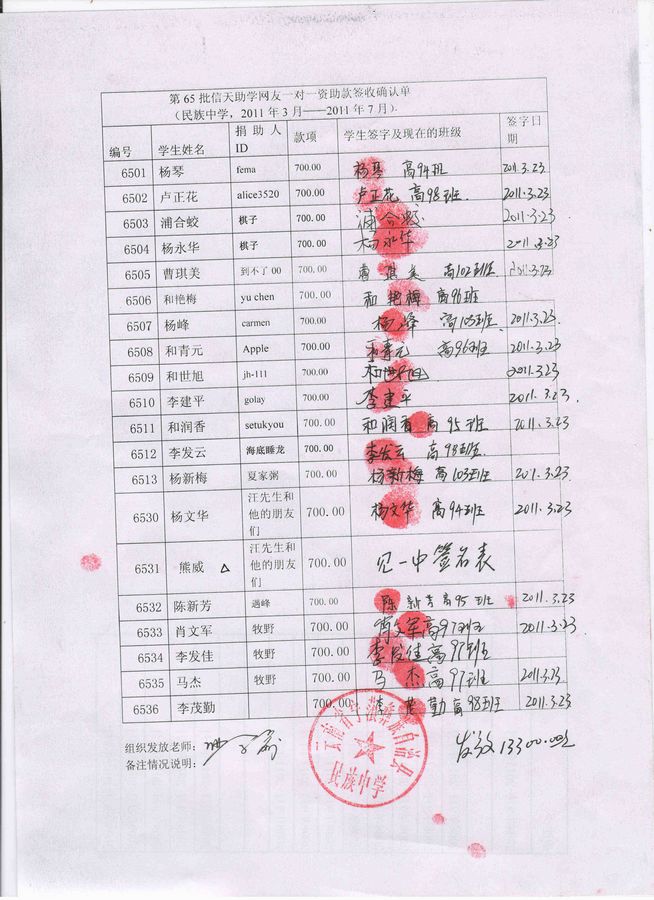 第 65 批信天助学网友一对一资助款签收确认单
（民族中学，2011 年 3 月——2011 年 7 月）.
编号 学生姓名 捐助人ID 款项 学生签字及现在的班级 签字日期
6501 杨琴 fema 700.00 杨琴 高94班 2011.3.23
6502 卢正花 alice3520 700.00 卢正花 高98班. 2011.3.23
6503 浦合蛟 棋子 700.00 浦合蛟 2011.3.23
6504 杨永华 棋子 700.00 杨永华 2011.3.23
6505 曹琪美 到不了 00 700.00 曹琪美 高102班 2011.3.23
6506 和艳梅 yu chen 700.00 和艳梅 高96班
6507 杨峰 carmen 700.00 杨峰 高103班 2011.3.23
6508 和青元 Apple 700.00 和青元 高96班 2011.3.23
6509 和世旭 jh-111 700.00 和世旭 2011.3.23
6510 李建平 golay 700.00 李建平 2011.3.23
6511 和润香 setukyou 700.00 和润香 高95班 2011.3.23
6512 李发云 海底睡龙 700.00 李发云 高98班
6513 杨新梅 夏家粥 700.00 杨新梅 高103班 2011.3.23
6530 杨文华 汪先生和他的朋友们 700.00 杨文华 高94班 2011.3.23
6531 熊威 △ 汪先生和他的朋友们 700.00 见一中签名表
6532 陈新芳 遇峰 700.00 陈新芳 高95班 2011.3.23
6533 肖文军 牧野 700.00 肖文军 高97班 2011.3.23
6534 李发佳 牧野 700.00 李发佳 高97班
6535 马杰 牧野 700.00 马杰 高97班 2011.3.23
6536 李茂勤 700.00 李茂勤 高98班 2011.3.23
组织发放老师：
发放13300.00元
备注情况说明：
民族中学